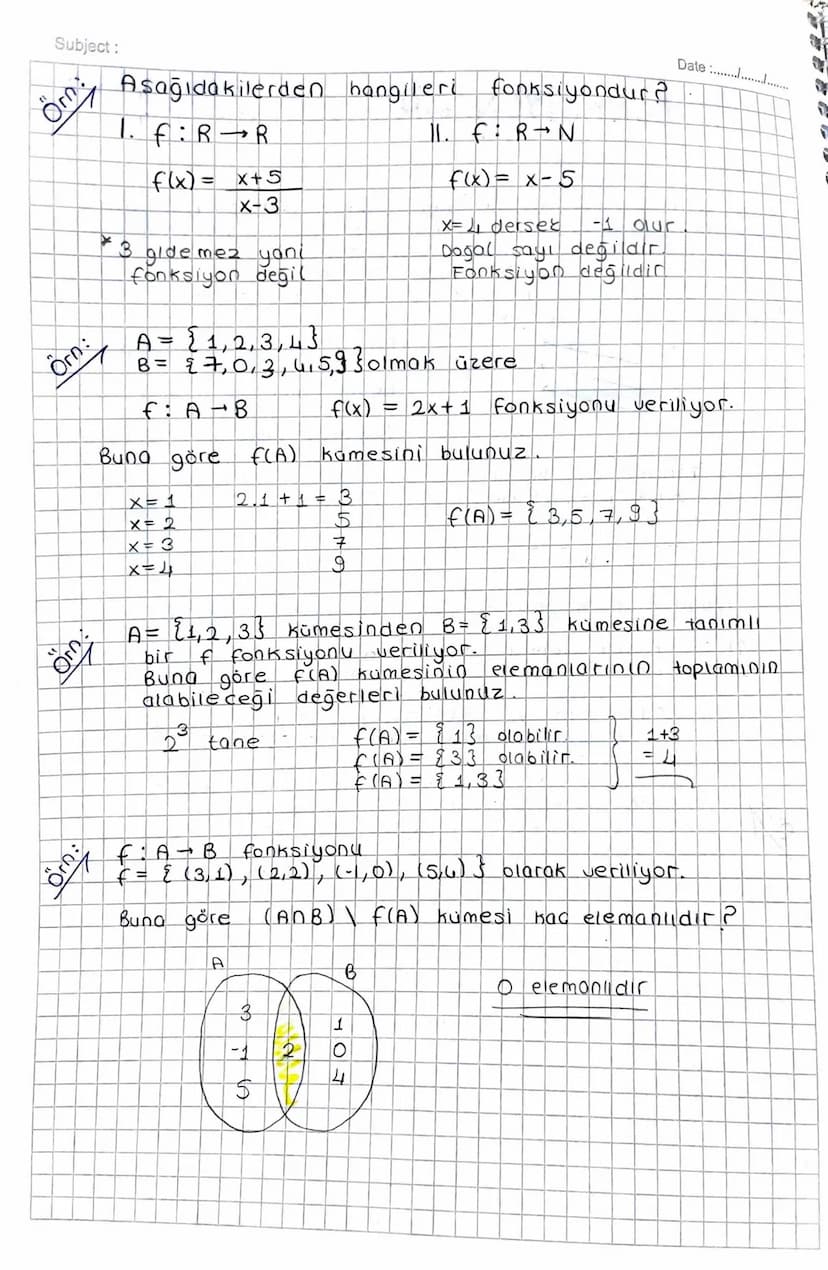 Subject :
Date :....../....../......
Örn: Aşağıdakilerden hangileri fonksiyondur?
I. f : R → R
II. f : R → N
f(x) = x+5 / x-3
f(x) = x-5
* 3 gidemez yani
fonksiyon değil
x=4 dersek -1 olur.
Doğal sayı değildir.
Fonksiyon değildir
Örn: A = {1,2,3,4}
B = {7,0,3,4,5,9} olmak üzere
f : A → B f(x) = 2x+1 fonksiyonu veriliyor.
Buna göre f(A) kümesini bulunuz.
x=1 2.1+1 = 3
x=2 5
x=3 7
x=4 9
f(A) = {3,5,7,9}
Örn: A= {1,2,3} kümesinden B= {1,3} kümesine tanımlı
bir f fonksiyonu veriliyor.
Buna göre f(A) kümesinin elemanlarının toplamının
alabileceği değerleri bulunuz.
2³ tane
f(A) = {1} olabilir.
f(A) = {3} olabilir.
f(A) = {1,3}
1+3
= 4
Örn: f : A → B fonksiyonu
f = {(3,1), (2,2), (-1,0), (5,4)} olarak veriliyor.
Buna göre (A∩B) \ f(A) kümesi kaç elemanlıdır?
A B
3
-1
5
2
1
0
4
0 elemanlıdır